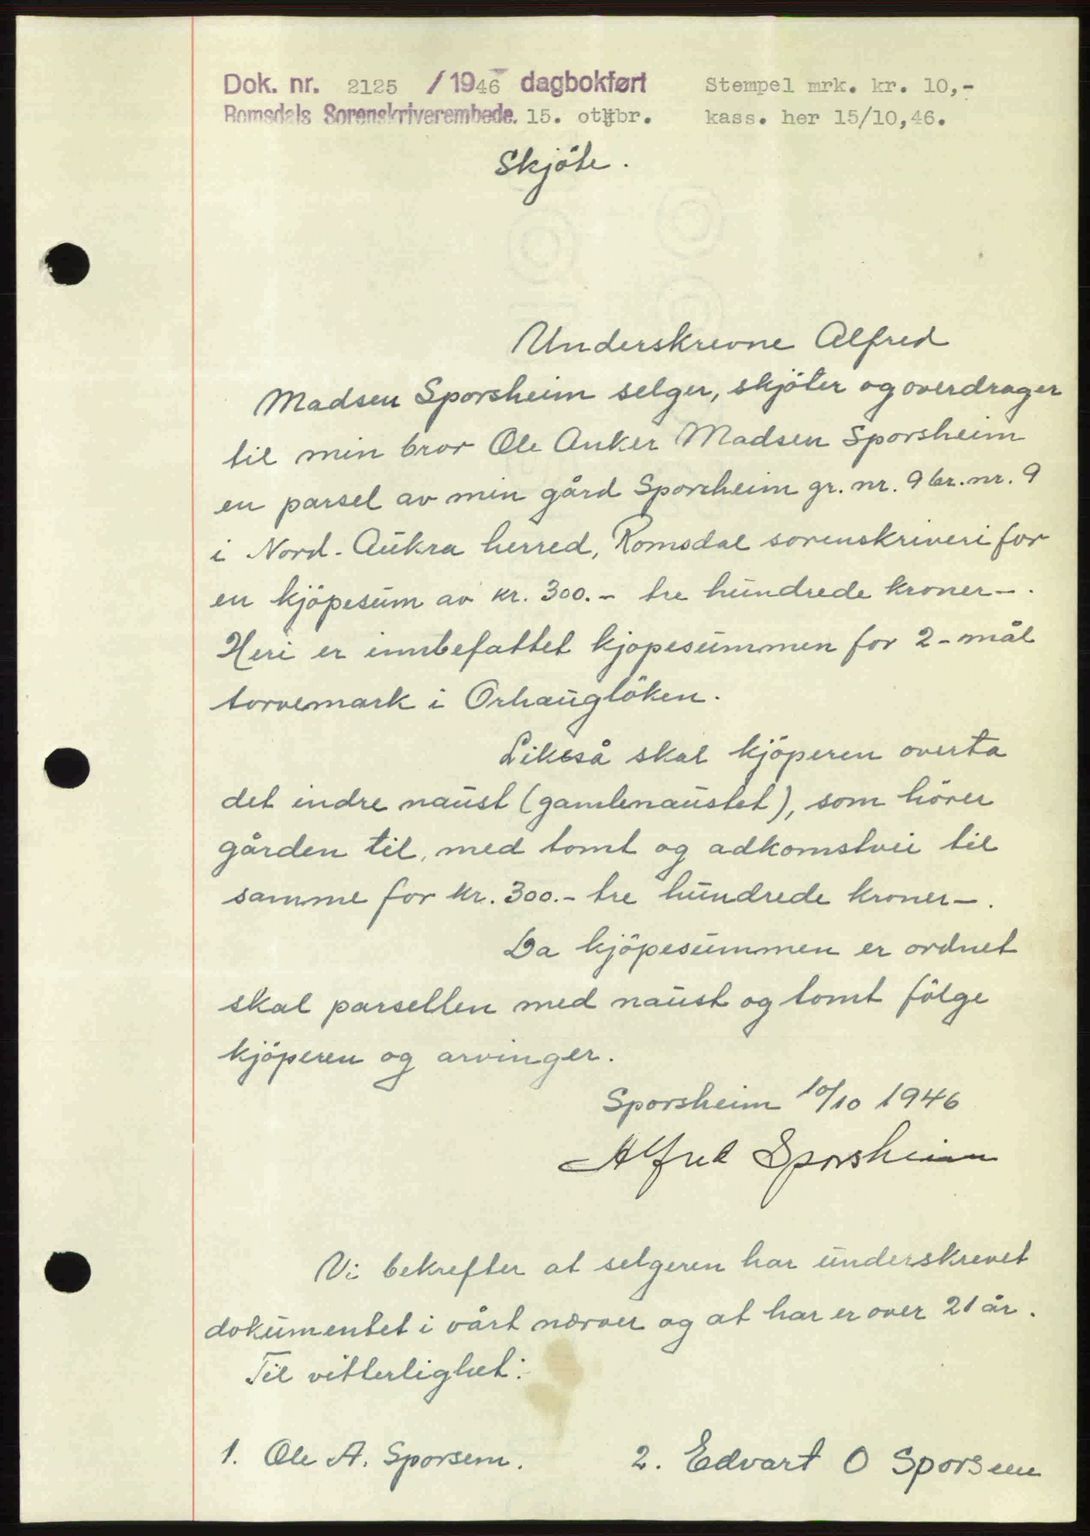 Dok. nr. 2125 / 1946 dagbokført Stempel mrk. kr. 10,-
Romsdals Sorenskriverembede. 15. otkbr. kass. her 15/10,46.
Skjöte.
Underskrevne Alfred
Madsen Sporsheim selger, skjöter og overdrager
til min bror Ole Anker Madsen Sporsheim
en parsel av min gård Sporsheim gr. nr. 9 br. nr. 9
i Nord-Aukra herred, Romsdal sorenskriveri for
en kjöpesum av kr. 300.- tre hundrede kroner-.
Heri er innbefattet kjöpesummen for 2-mål
torvemark i Orhauglöken.
Likeså skal kjöperen overta
det indre naust (gamlenaustet), som hörer
gården til, med tomt og adkomstvei til
samme for kr. 300.- tre hundrede kroner-.
Da kjöpesummen er ordnet
skal parsellen med naust og tomt fölge
kjöperen og arvinger.
Sporsheim 10/10 1946
Alfred Sporsheim
Vi bekrefter at selgeren har underskrevet
dokumentet i vårt nærver og at har er over 21 år.
Til vitterlighet:
1. Ole A. Sporsem. 2. Edvart O Sporsem